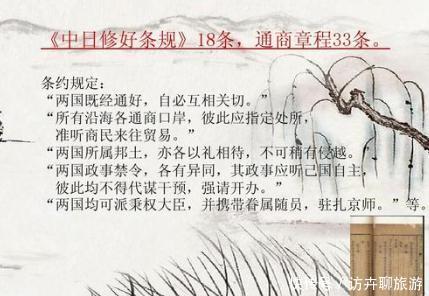 《中日修好条规》18条，通商章程33条。
条约规定：
“两国既经通好，自必互相关切。”
“所有沿海各通商口岸，彼此应指定处所，
准听商民来往贸易。”
“两国所属邦土，亦各以礼相待，不可稍有侵越。
“两国政事禁令，各有异同，其政事应听己国自主，
彼此均不得代谋干预，强请开办。”
“两国均可派秉权大臣，并携带眷属随员，驻扎京师。”等。
访卉聊旅游